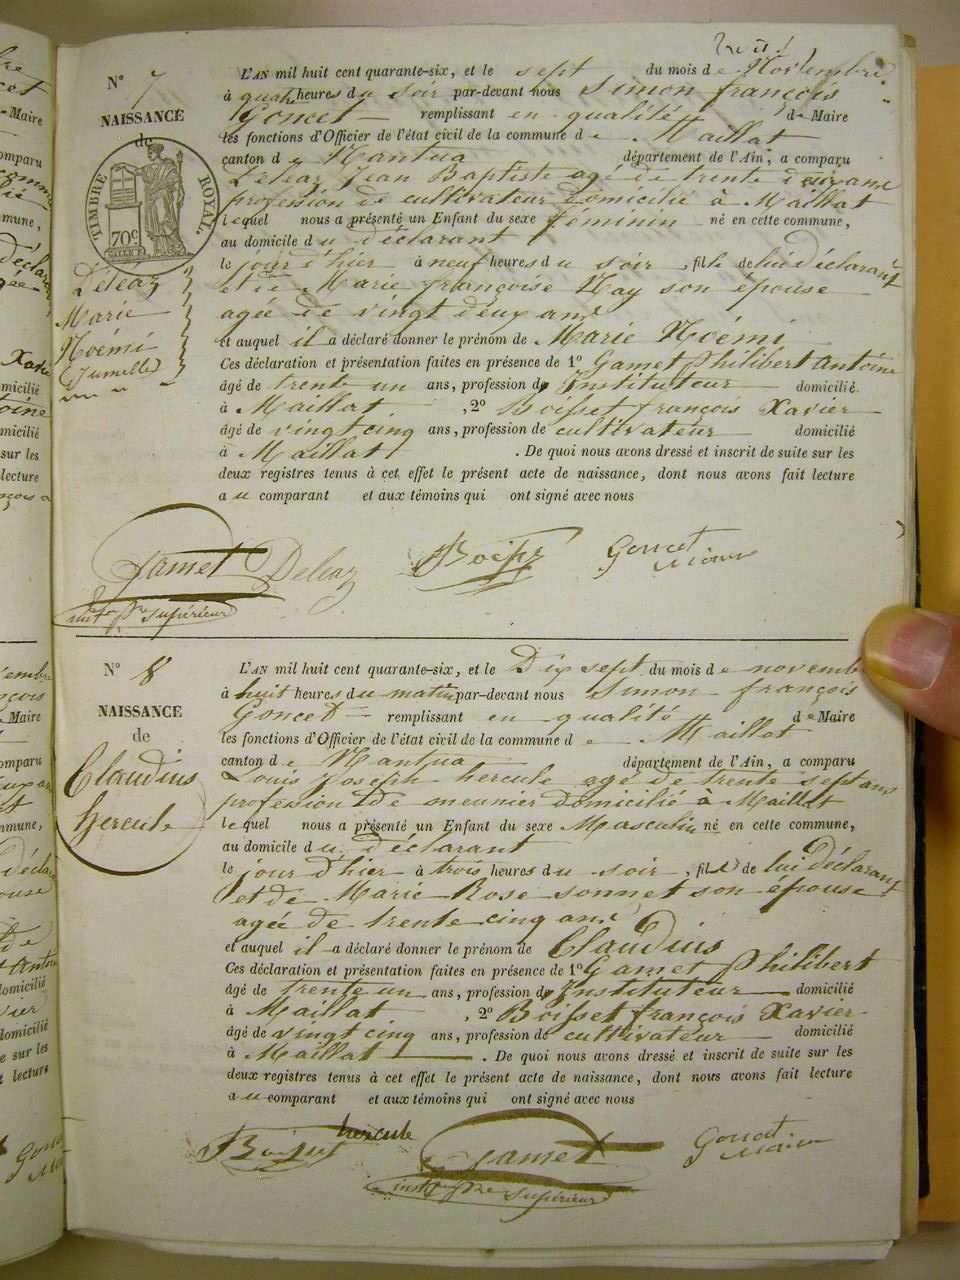 huit
N° 7
NAISSANCE
de
TIMBRE ROYAL.
70c
Deléaz
Marie
Noémi
Jumelle
L'AN mil huit cent quarante-six, et le sept du mois de Novembre
à quatre heures du soir par-devant nous Simon françois
Goncet remplissant en qualité de Maire
les fonctions d'Officier de l'état civil de la commune de Maillat
canton de Nantua département de l'Ain, a comparu
Deléaz Jean Baptiste agé de trente deux ans
profession de cultivateur domicilié à Maillat
lequel nous a présenté un Enfant du sexe féminin né en cette commune,
au domicile du déclarant
le jour d'hier à neuf heures du soir, fille de lui déclarant
et de Marie françoise Hay son épouse
agée de vingt deux ans
et auquel il a déclaré donner le prénom de Marie Noémi
Ces déclaration et présentation faites en présence de 1° Gamet Philibert Antoine
âgé de trente un ans, profession de Instituteur domicilié
à Maillat, 2° Boisset françois Xavier
âgé de vingt cinq ans, profession de cultivateur domicilié
à Maillat. De quoi nous avons dressé et inscrit de suite sur les
deux registres tenus à cet effet le présent acte de naissance, dont nous avons fait lecture
au comparant et aux témoins qui ont signé avec nous
Gamet Deleaz Goncet
Maire
instr pre supérieur
N° 8
NAISSANCE
de
Claudius
hercule
L'AN mil huit cent quarante-six, et le Dix sept du mois de novemb
à huit heures du matin par-devant nous Simon françois
Goncet remplissant en qualité de Maire
les fonctions d'Officier de l'état civil de la commune de Maillat
canton de Nantua département de l'Ain, a comparu
Louis Joseph hercule agé de trente sept ans
profession de meunier domicilié à Maillat
lequel nous a présenté un Enfant du sexe Masculin né en cette commune,
au domicile du déclarant
le jour d'hier à trois heures du soir, fils de lui déclarant
et de Marie Rose sonnet son épouse
agée de trente cinq ans
et auquel il a déclaré donner le prénom de Claudius
Ces déclaration et présentation faites en présence de 1° Gamet Philibert
âgé de trente un ans, profession de Instituteur domicilié
à Maillat, 2° Boisset françois Xavier
âgé de vingt cinq ans, profession de cultivateur domicilié
à Maillat. De quoi nous avons dressé et inscrit de suite sur les
deux registres tenus à cet effet le présent acte de naissance, dont nous avons fait lecture
au comparant et aux témoins qui ont signé avec nous
hercule
Boisset Gamet Goncet
Maire
instr pre supérieur